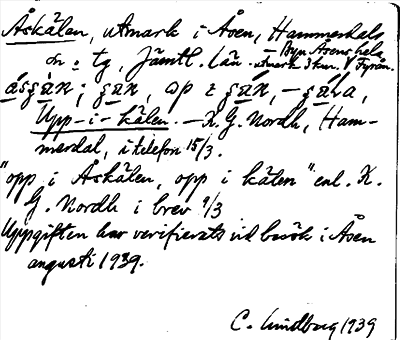 Åskälan, utmark i Åsen, Hammerdals
sn o tg, Jämtl. län. – Byn Åsens hela
utmark
åsʂàn; ʂan, op i ʂan, – ʂala,
Upp-i-kälen. – K. G. Nordh, Ham-
merdal, i telefon 15/3.
"opp i Åskälen, opp i kälen" enl. K.
G. Nordh i brev 9/3
Uppgiften har verifierats vid besök i Åsen
augusti 1939.
C. Lindberg 1939